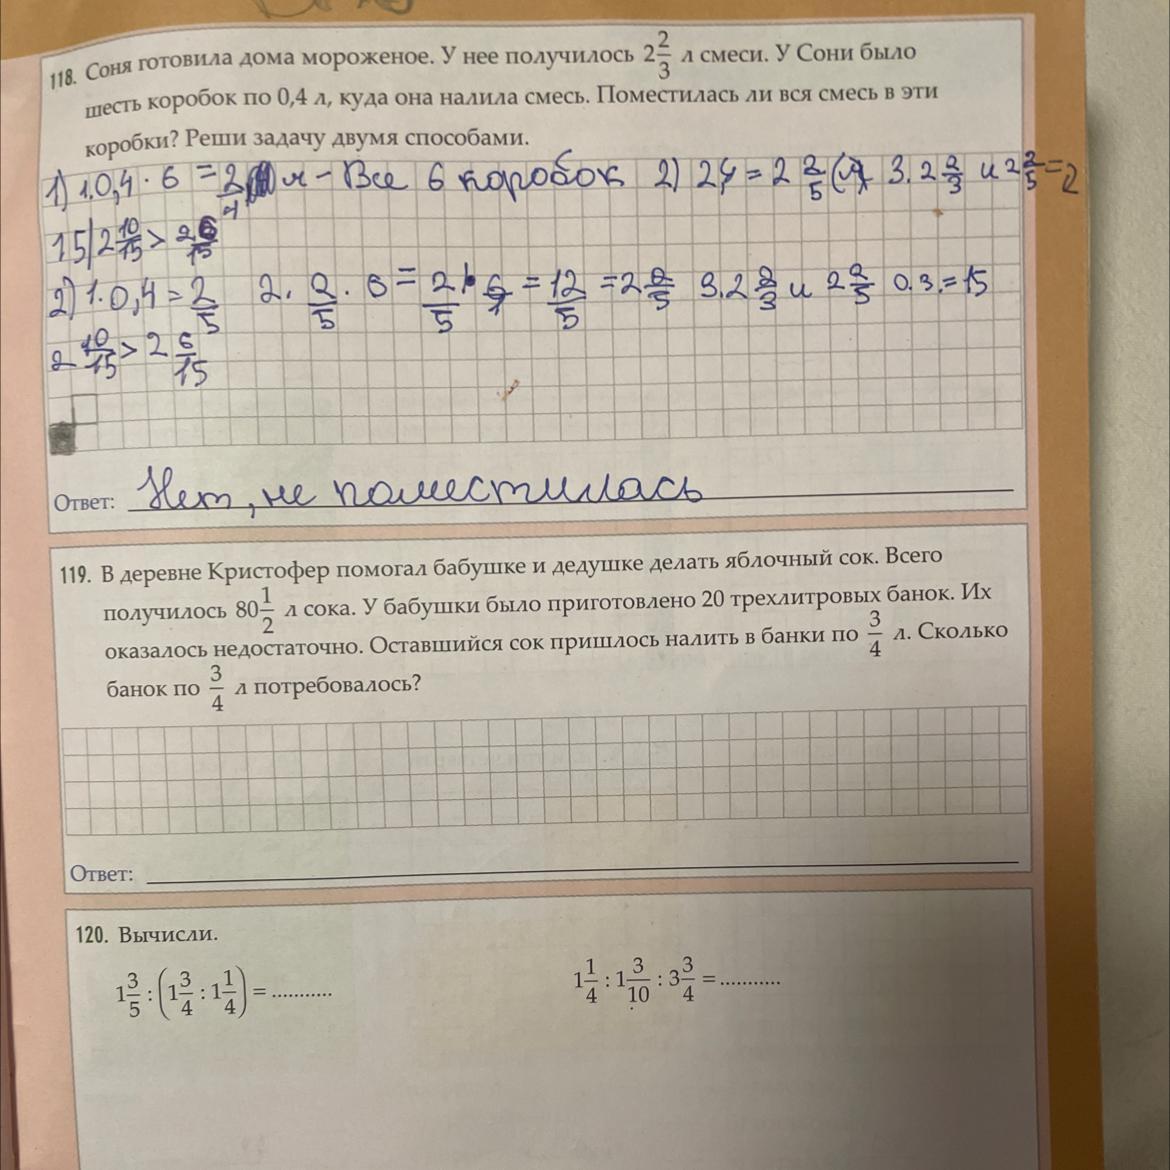 118. Соня готовила дома мороженое. У нее получилось 2 2/3 л смеси. У Сони было
шесть коробок по 0,4 л, куда она налила смесь. Поместилась ли вся смесь в эти
коробки? Реши задачу двумя способами.
1) 1. 0,4 · 6 = 2,4 л - Все 6 коробок 2) 2,4 = 2 2/5 (л) 3. 2 2/3 и 2 2/5 = 2
15 | 2 10/15 > 2 6/15
2) 1. 0,4 = 2/5 2. 2/5 · 6 = 2/5 · 6/1 = 12/5 = 2 2/5 3. 2 2/3 и 2 2/5 О.З. = 15
2 10/15 > 2 6/15
Ответ: Нет, не поместилась
119. В деревне Кристофер помогал бабушке и дедушке делать яблочный сок. Всего
получилось 80 1/2 л сока. У бабушки было приготовлено 20 трехлитровых банок. Их
оказалось недостаточно. Оставшийся сок пришлось налить в банки по 3/4 л. Сколько
банок по 3/4 л потребовалось?
Ответ:
120. Вычисли.
1 3/5 : (1 3/4 : 1 1/4) = ........... 1 1/4 : 1 3/10 : 3 3/4 = ...........